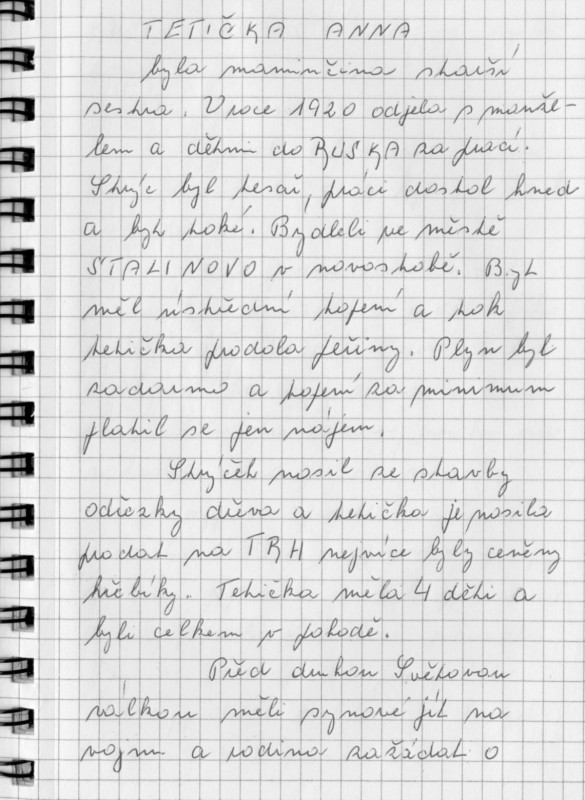 TETIČKA ANNA
byla maminčina starší
sestra. V roce 1920 odjela s manže-
lem a dětmi do RUSKA za prací.
Strýc byl tesař, práci dostal hned
a byt také. Bydleli ve městě
STALINOVO v novostabě. Byt
měl ústřední topení a tak
tetička prodala peřiny. Plyn byl
zadarmo a topení za minimum
platil se jen nájem.
Strýček nosil ze stavby
odřezky dřeva a tetička je nosila
prodat na TRH nejvíce byly ceněny
hřebíky. Tetička měla 4 děti a
byli celkem v pohodě.
Před druhou Světovou
válkou měli synové jít na
vojnu a rodina zažádat o